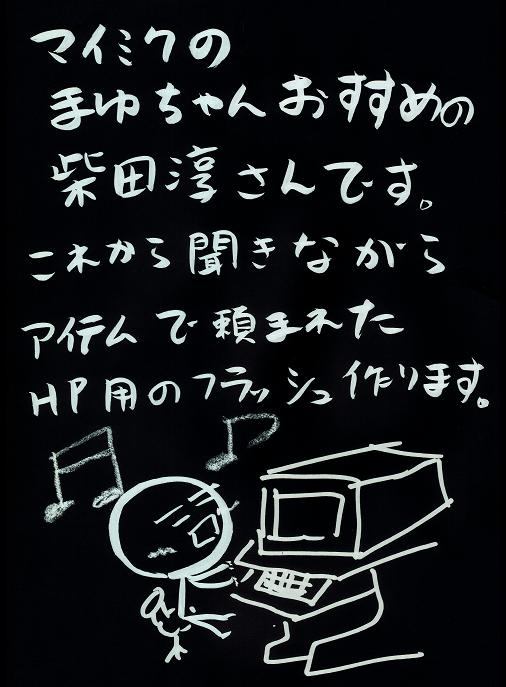 マイミクの
まゆちゃんおすすめの
柴田淳さんです。
これから聞きながら
アイテムで頼まれた
HP用のフラッシュ作ります。